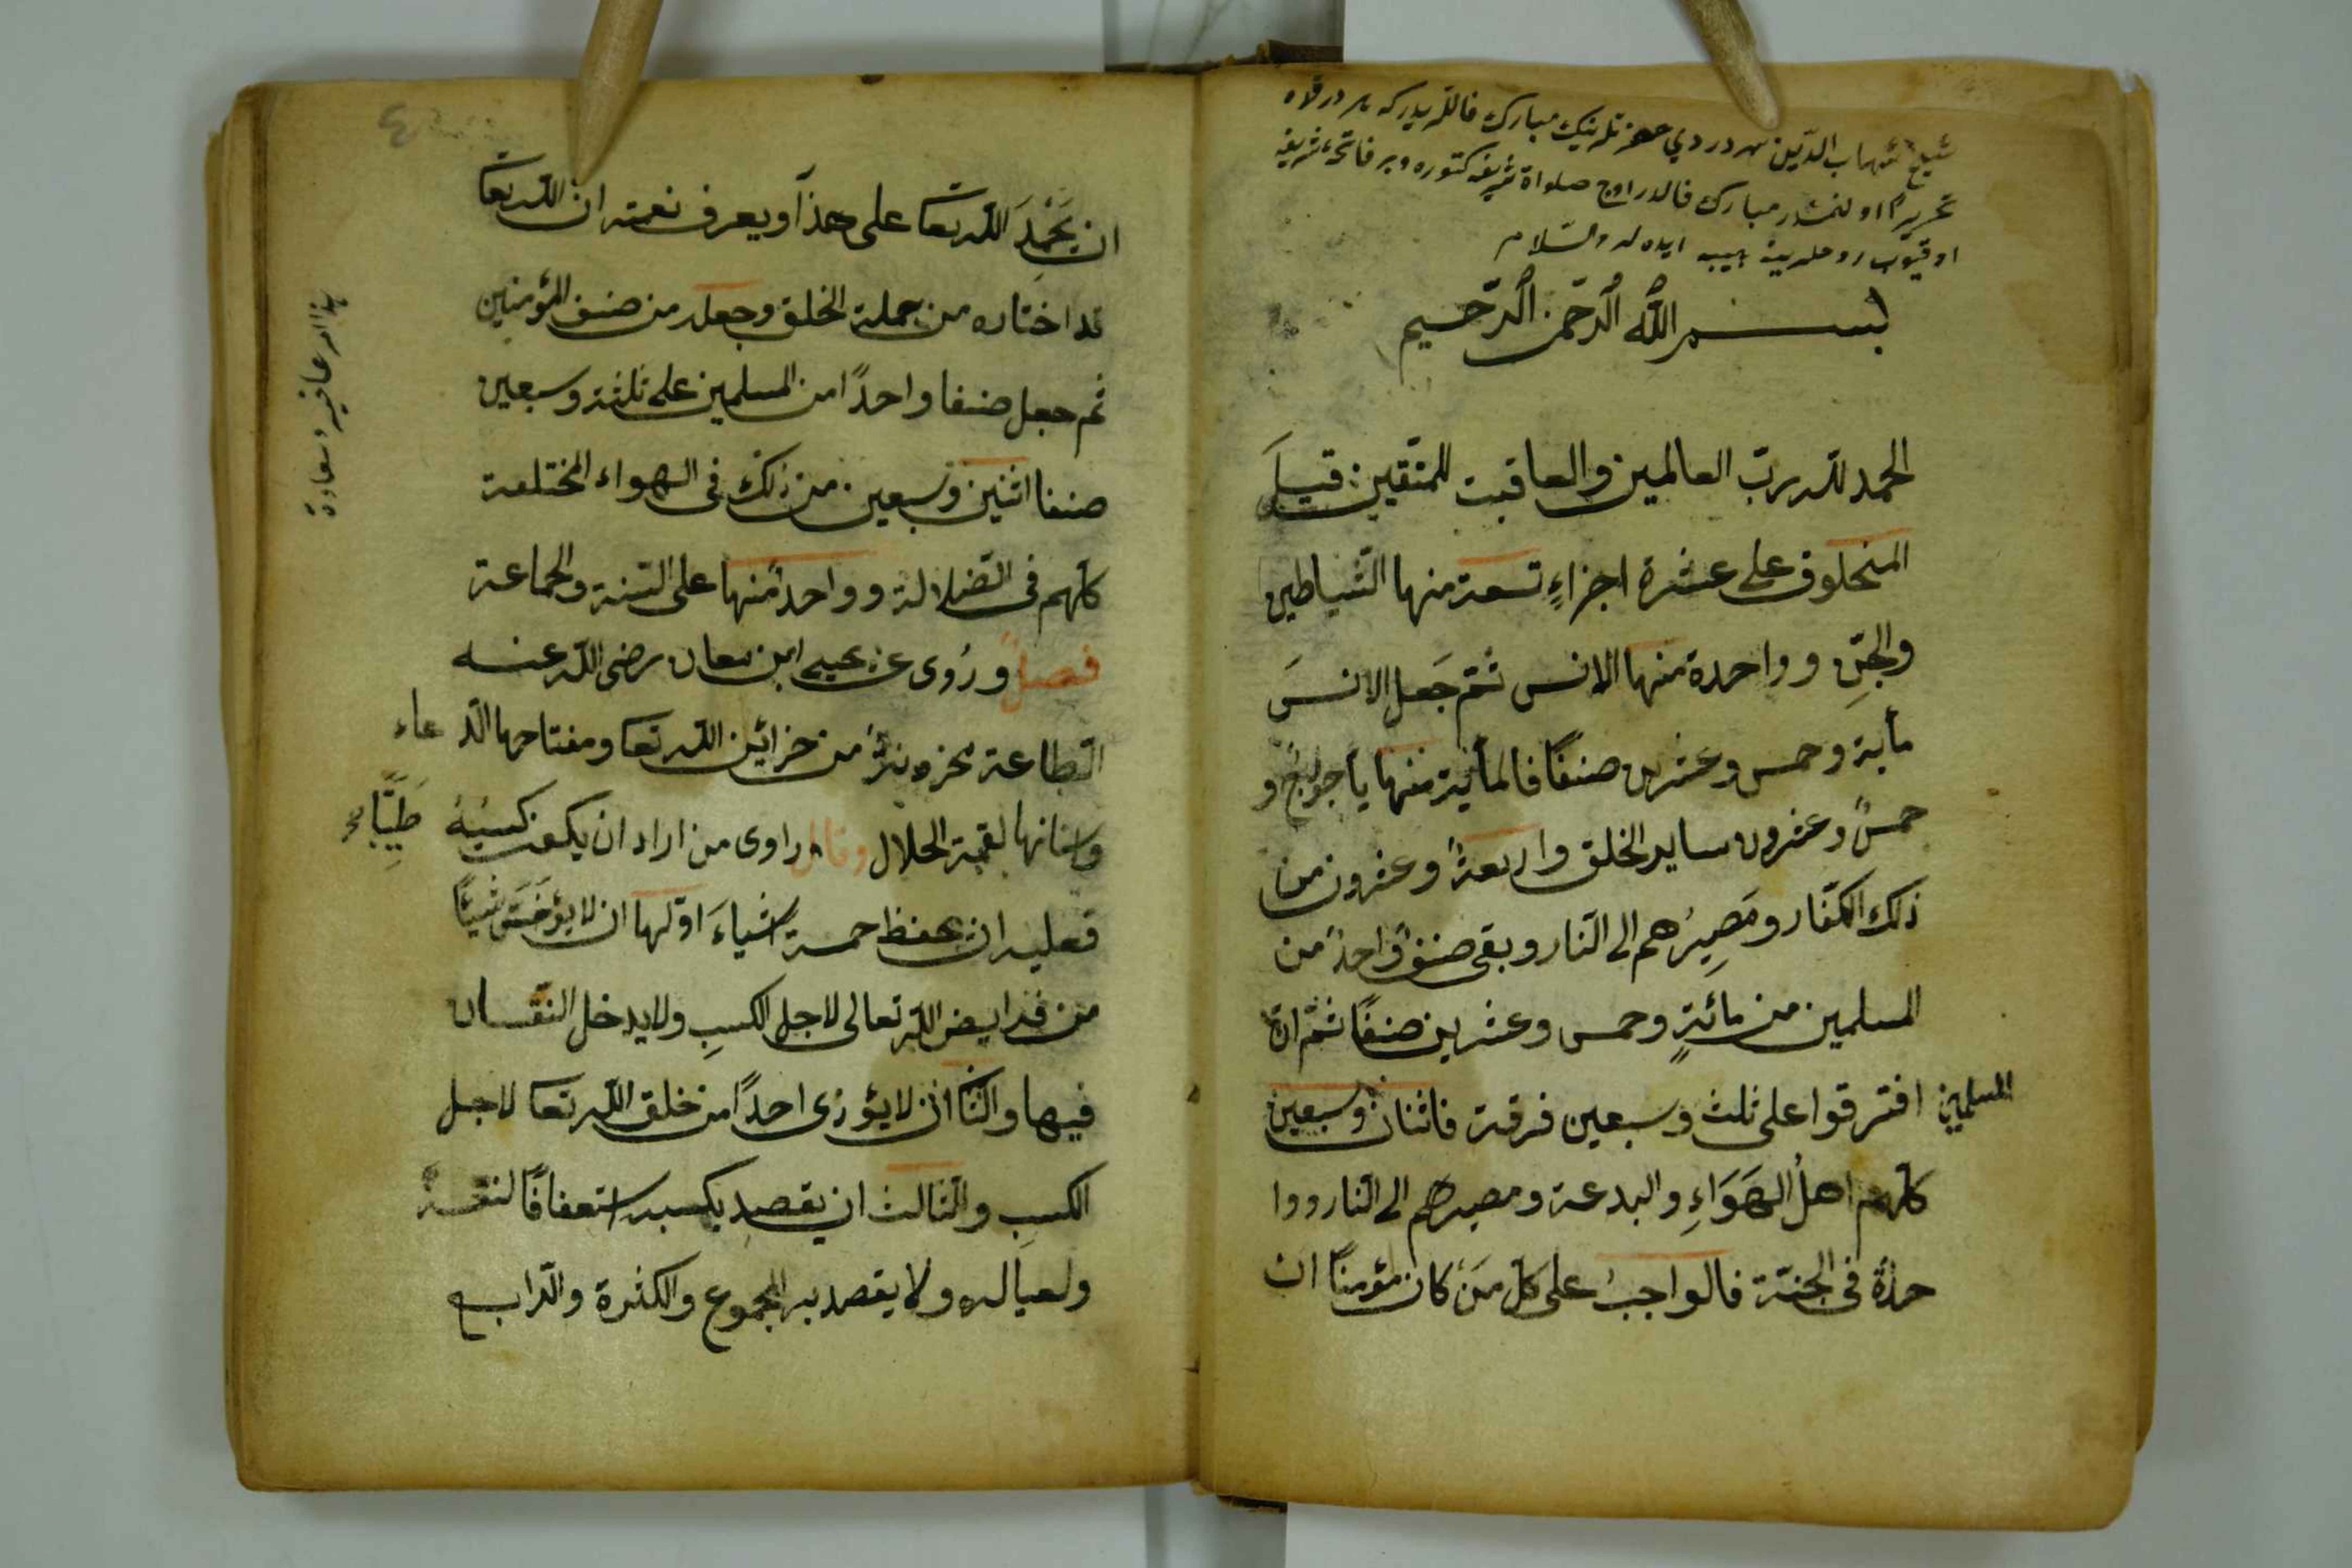 شيخ شهاب الدين سهروردي حضرتلرينك مبارك فاللريدركه
تحريرًا اولنمشدر مبارك فالدر اوچ صلواة شريفه كتوره وبر فاتحۀ شريفه
اوقيوب روحلرينه هبه ايده لر والسّلام
بسم الله الرّحمن الرّحيم
الحمد لله ربّ العالمين والعاقبت للمتّقين قيلَ
المخلوق على عشرة اجزاءٍ تسعة منها الشّياطين
والجنِّ وواحدة منها الانس ثمّ جَعل الانسَ
مأية وخمس وعشرين صنفًا فالمأية منها يأجوج و
خمسٌ وعشرون ساير الخلق واربعةٌ وعشرون من
ذلك الكفّار ومَصِيرُهم الى النّار وبقى صنفٌ واحدٌ من
المسلمين من مائةٍ وخمس وعشرين صنفًا ثمّ انّ
المسلمين افترقوا على ثلث وسبعين فرقة فاثنان وسبعين
كلّهم اهلُ الهَوَاءِ والبدعة ومصيرهم الى النّار ووا
حدةٌ فى الجنّة فالواجبُ على كلّ مَن كان مؤمنًا ان
ان يَحْمِدَ الله تعا على هذا ويعرف نعمته ان الله تعا
قد اختاره من جملة الخلق وجعله من صنف المؤمنين
ثم جعل صنفا واحدًا من المسلمين على ثلثة وسبعين
صنفا اثنين وسبعين من ذلك فى الهواء المختلفة
كلّهم فى الضّلالة وواحدٌ منها على السّنة والجماعة
فصلٌ ورُوى عن يحيى ابن معان رضى الله عنه
الطّاعة مخزونةٌ من خزائن الله تعا ومفتاحها الدّعاء
واسنانها لقمة الحلال وقال راوى من اراد ان يكون كسبُهُ طَيِّبًا
فعليه ان يحفظ خمسة اشياءَ اوّلها ان لا يؤخّر شيئًا
من فرايض الله تعالى لاجل الكسبِ ولا يدخل النّقسان
فيها والثّنا ان لا يؤذى احدًا من خلق الله تعا لاجل
الكسبِ والثّالث ان يقصد بكسبه استعفافًا لنفسهٖ
ولعياله ولا يقصد به المجموع والكثرة والرّابع